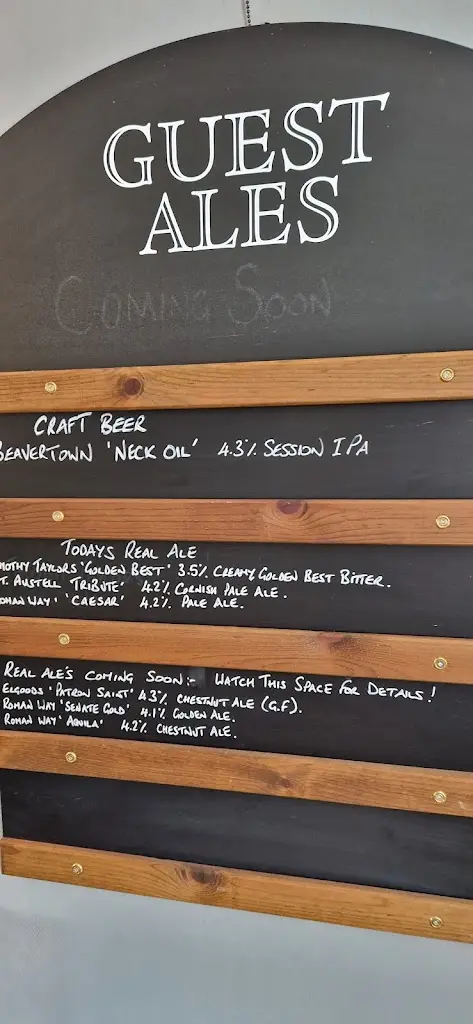 GUEST
ALES
COMING SOON
CRAFT BEER
BEAVERTOWN 'NECK OIL' 4.3% SESSION IPA
TODAYS REAL ALE
MOTHY TAYLORS 'GOLDEN BEST' 3.5% CREAMY GOLDEN BEST BITTER.
T. AUSTELL TRIBUTE' 4.2% CORNISH PALE ALE.
OMAN WAY' 'CAESAR' 4.2% PALE ALE.
REAL ALE'S COMING SOON:- WATCH THIS SPACE FOR DETAILS!
ELGOODS 'PATRON SAINT' 4.3% CHESTNUT ALE (G.F).
ROMAN WAY 'SENATE GOLD' 4.1% GOLDEN ALE.
ROMAN WAY 'AQUILA' 4.2% CHESTNUT ALE.